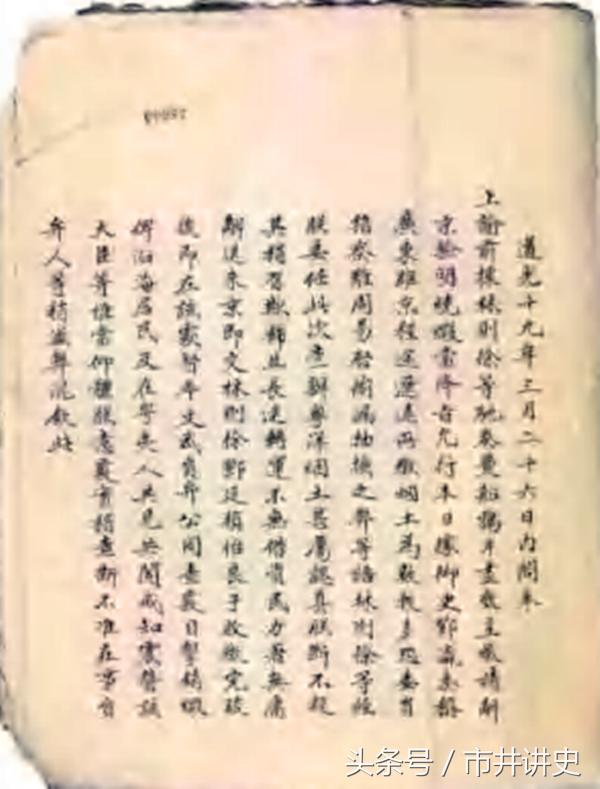 道光十九年三月二十六日内閣奉
上諭前據林則徐等馳奏躉船鴉片盡數呈繳請解
京驗明燒燬當降旨允行本日據御史鄧瀛奏稱
廣東距京程途遼遠所繳烟土為數較多恐委員
稽察難周易啓偷漏抽換之弊等語林則徐等經
朕委任此次查辦粤洋烟土甚屬認真朕斷不疑
其稍有欺飾且長途轉運不無借資民力著無庸
解送来京即交林則徐鄧廷楨怡良于收繳完竣
後即在該處督率文武員弁公同查覈目擊銷燬
俾沿海居民及在粤夷人共見共聞咸知震讋該
大臣等惟當仰體朕意覈實稽查斷不准在事官
弁人等稍滋弊混欽此
头条号 / 市井讲史